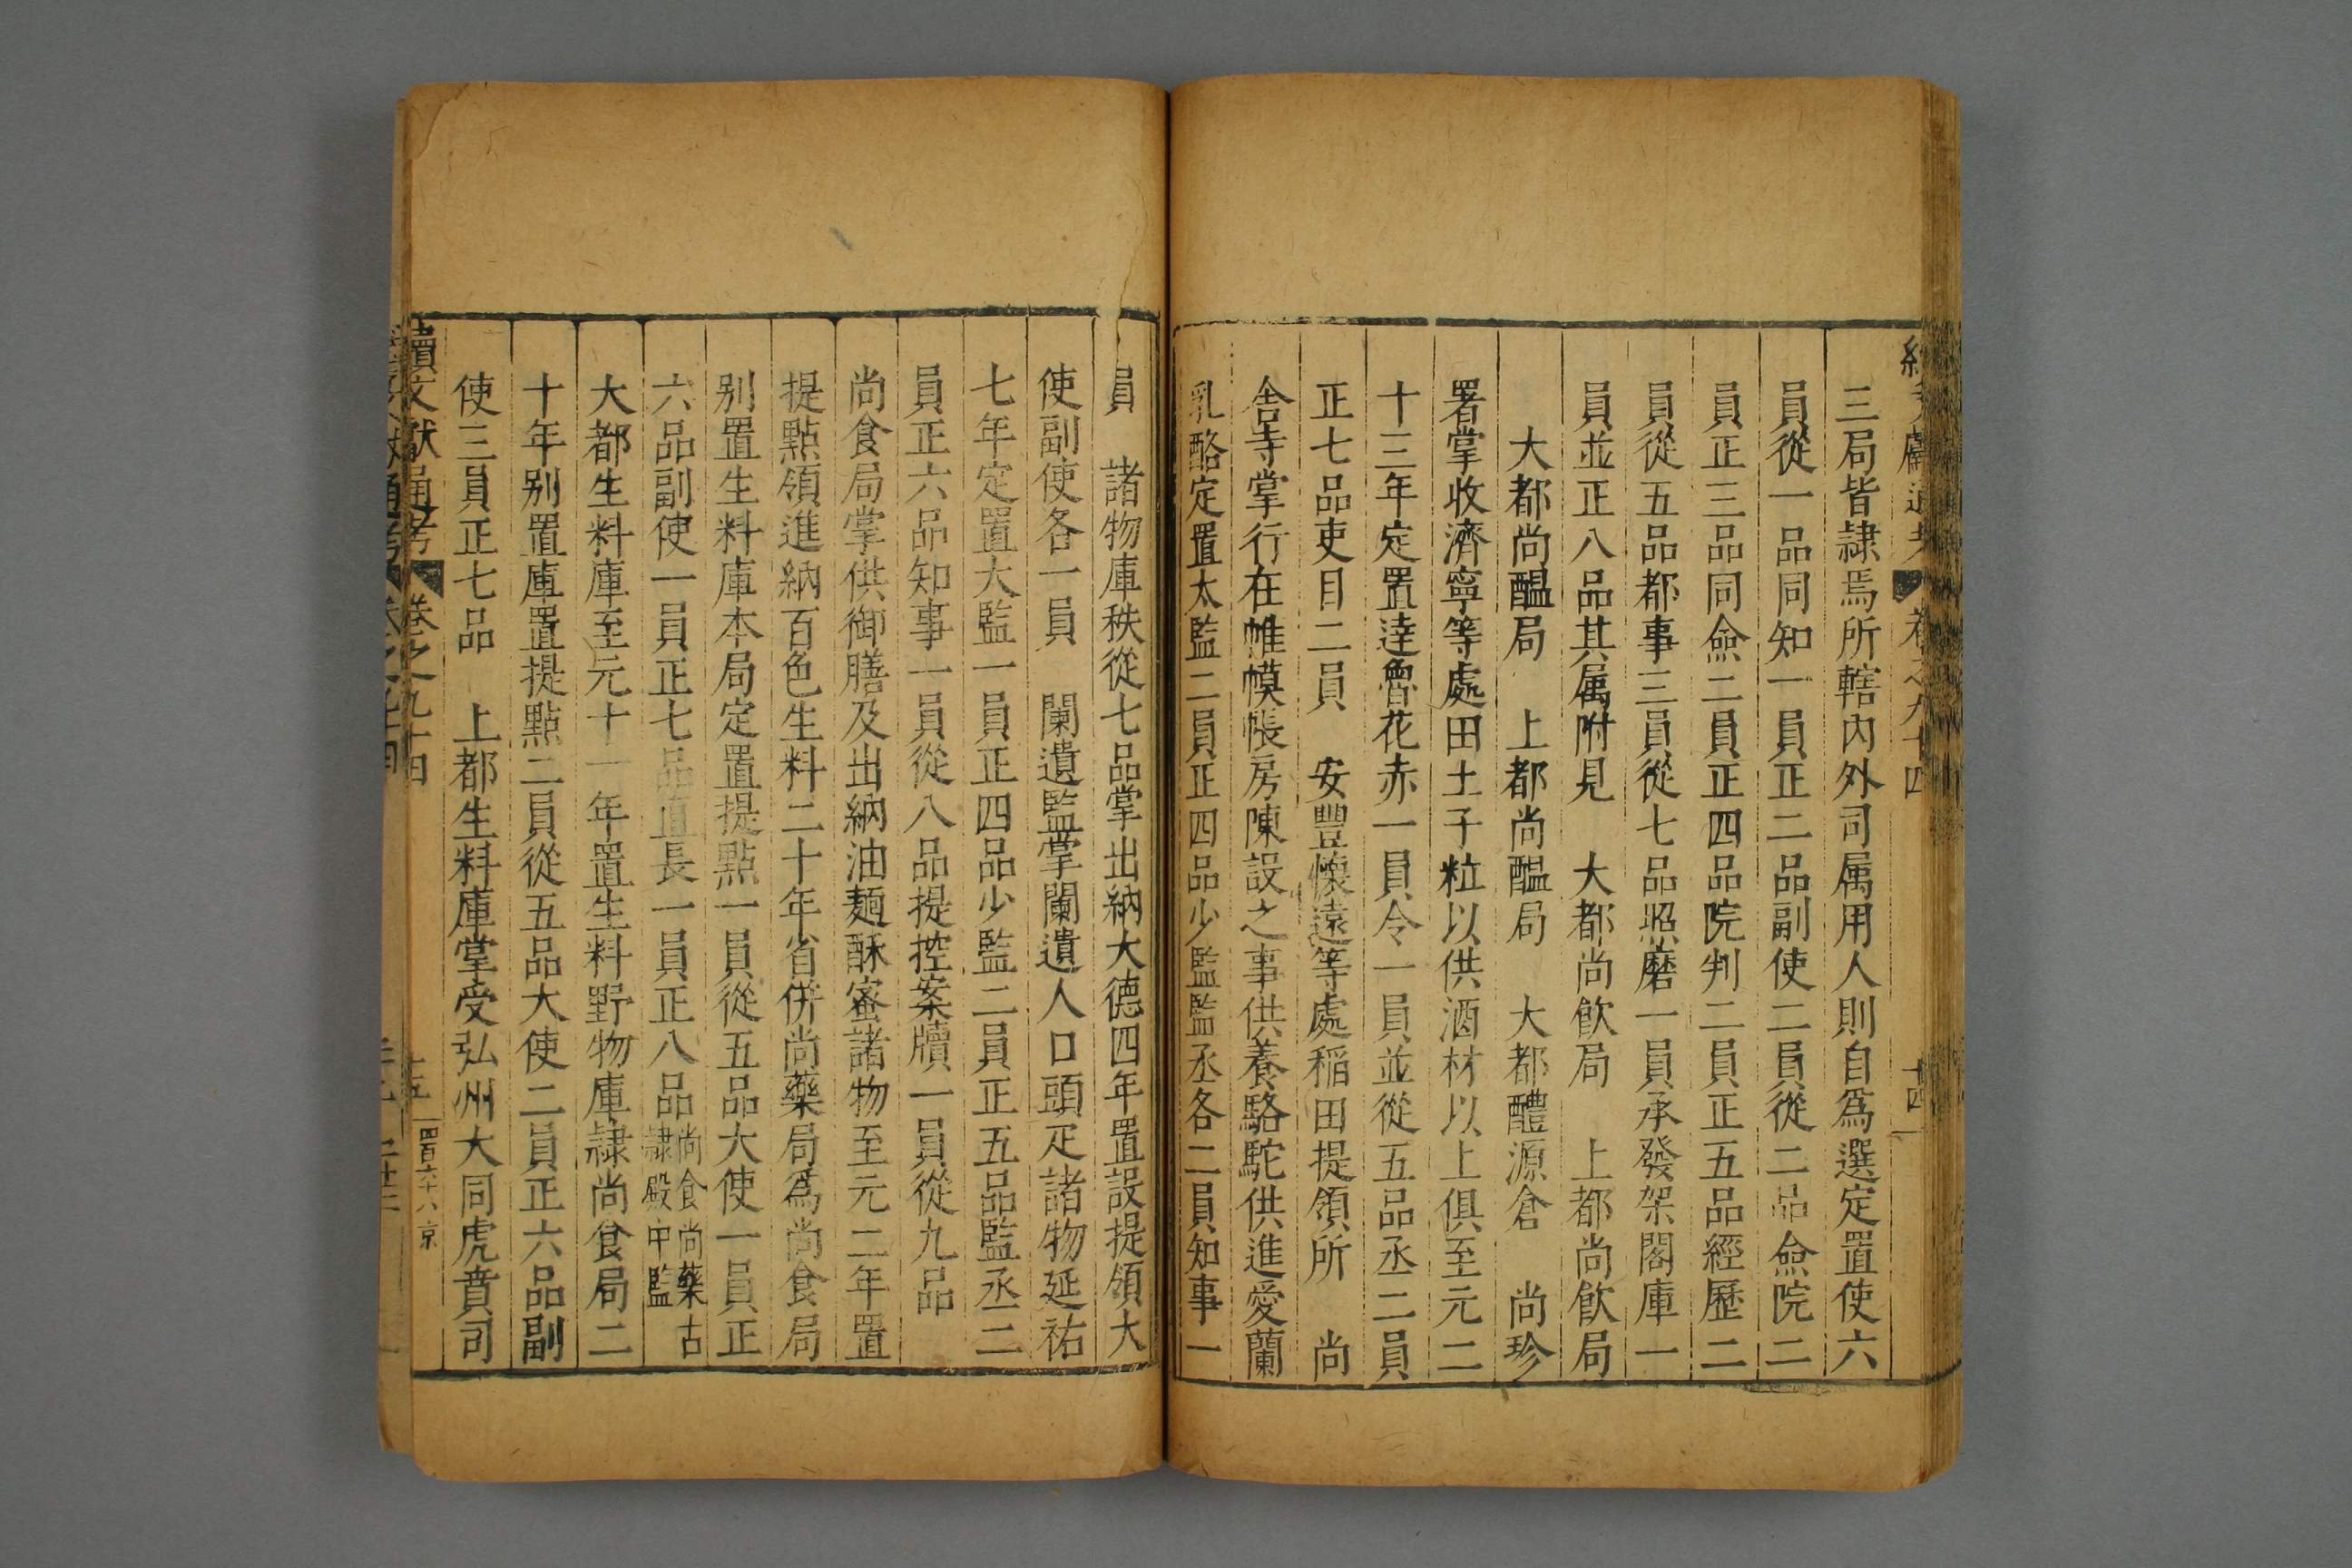 三局皆隷焉所轄內外司属用人則自爲選定置使六
員從一品同知一員正二品副使二員從二品僉院二
員正三品同僉二員正四品院判二員正五品經歷二
員從五品都事三員從七品照磨一員承發架閣庫一
員並正八品其属附見　大都尚飲局　上都尚飲局
大都尚醖局　上都尚醖局　大都醴源倉　尚珍
署掌收濟寧等處田土子粒以供酒材以上俱至元二
十三年定置達魯花赤一員令一員並從五品丞二員
正七品吏目二員　安豐懷遠等處稲田提領所　尚
舍寺掌行在帷幙帳房陳設之事供養駱駝供進愛蘭
乳酪定置太監二員正四品少監監丞各二員知事一
員　諸物庫秩從七品掌出納大德四年置設提領大
使副使各一員　闌遺監掌闌遺人口頭疋諸物延祐
七年定置大監一員正四品少監二員正五品監丞二
員正六品知事一員從八品提控案牘一員從九品
尚食局掌供御膳及出納油麺酥蜜諸物至元二年置
提點領進納百色生料二十年省併尚藥局爲尚食局
别置生料庫本局定置提點一員從五品大使一員正
六品副使一員正七品直長一員正八品尚食尚藥古隷殿中監
大都生料庫至元十一年置生料野物庫隷尚食局二
十年别置庫置提點二員從五品大使二員正六品副
使三員正七品　上都生料庫掌受弘州大同虎賁司
續文獻通考　卷之九十四　十五　四百六十八　京